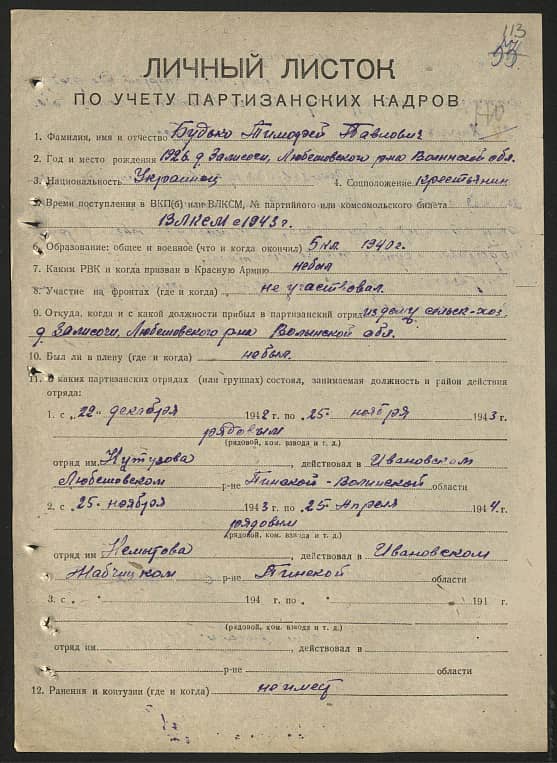 113
ЛИЧНЫЙ ЛИСТОК
ПО УЧЕТУ ПАРТИЗАНСКИХ КАДРОВ
1. Фамилия, имя и отчество Будько Тимофей Павлович
2. Год и место рождения 1926 д. Залисочи, Любешовского р-на Волинской обл.
3. Национальность Украинец 4. Соцположение крестьянин
5. Время поступления в ВКП(б) или ВЛКСМ, № партийного или комсомольского билета
ВЛКСМ с 1943 г.
6. Образование: общее и военное (что и когда окончил) 5 кл. 1940 г.
7. Каким РВК и когда призван в Красную Армию небыл
8. Участие на фронтах (где и когда) не участвовал.
9. Откуда, когда и с какой должности прибыл в партизанский отряд из дому сельск-хоз
д. Залисочи, Любешовского р-на Волынской обл.
10. Был ли в плену (где и когда) небыл.
11. В каких партизанских отрядах (или группах) состоял, занимаемая должность и район действия
отряда:
1. с „22" декабря 1942 г. по „25" ноября 1943 г.
рядовым
(рядовой, ком. взвода и т. д.)
отряд им. Кутузова, действовал в Ивановском
Любешовском р-не Пинской-Волинской области
2. с „25" ноября 1943 г. по „25" Апреля 1944 г.
рядовым
(рядовой, ком. взвода и т. д.)
отряд им. Немытова, действовал в Ивановском
Жабчицком р-не Пинской области
3. с „ " 194 г. по „ " 191 г.
(рядовой, ком. взвода и т. д.)
отряд им. , действовал в
р-не области
12. Ранения и контузии (где и когда) не имеет